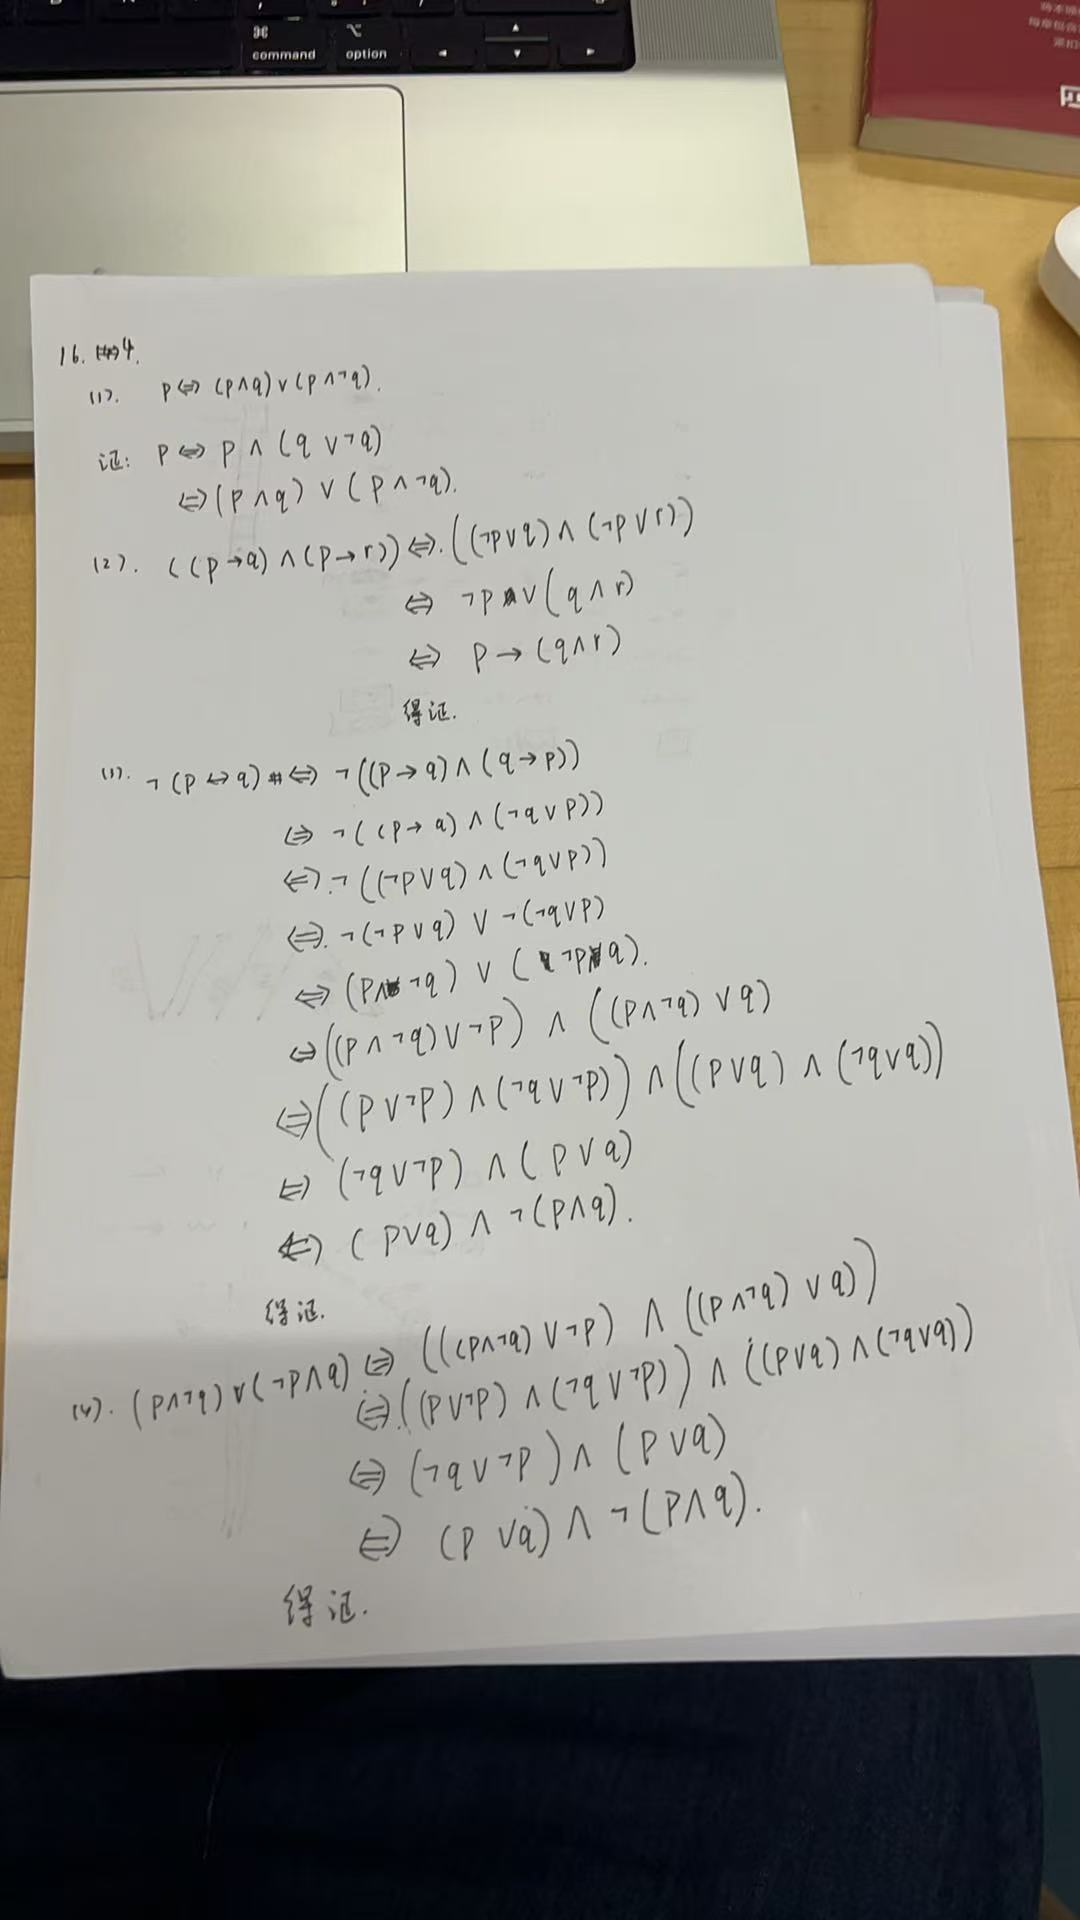 ⌘ ⌥
command option
16. 4.
(1). p⇔(p∧q)∨(p∧¬q).
证: p⇔ p∧(q∨¬q)
⇔(p∧q)∨(p∧¬q).
(2). ((p→q)∧(p→r))⇔.((¬p∨q)∧(¬p∨r))
⇔ ¬p∨(q∧r)
⇔ p→(q∧r)
得证.
(3). ¬(p↔q)⇔ ¬((p→q)∧(q→p))
⇔ ¬((p→q)∧(¬q∨p))
⇔.¬((¬p∨q)∧(¬q∨p))
⇔. ¬(¬p∨q)∨¬(¬q∨p)
⇔ (p∧¬q)∨(¬p∧q).
⇔((p∧¬q)∨¬p)∧((p∧¬q)∨q)
⇔((p∨¬p)∧(¬q∨¬p))∧((p∨q)∧(¬q∨q))
⇔ (¬q∨¬p)∧(p∨q)
⇔ (p∨q)∧¬(p∧q).
得证.
(4). (p∧¬q)∨(¬p∧q)⇔ (((p∧¬q)∨¬p)∧((p∧¬q)∨q))
⇔.((p∨¬p)∧(¬q∨¬p))∧((p∨q)∧(¬q∨q))
⇔ (¬q∨¬p)∧(p∨q)
⇔ (p∨q)∧¬(p∧q).
得证.